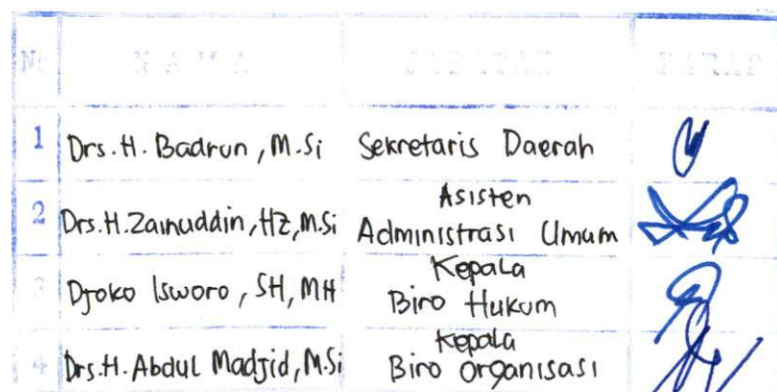 No NAMA JABATAN PARAF
1 Drs. H. Badrun, M.Si Sekretaris Daerah
2 Drs.H.Zainuddin, HZ, M.Si Asisten
Administrasi Umum
3 Djoko Isworo, SH, MH Kepala
Biro Hukum
4 Drs.H. Abdul Madjid, M.Si Kepala
Biro Organisasi